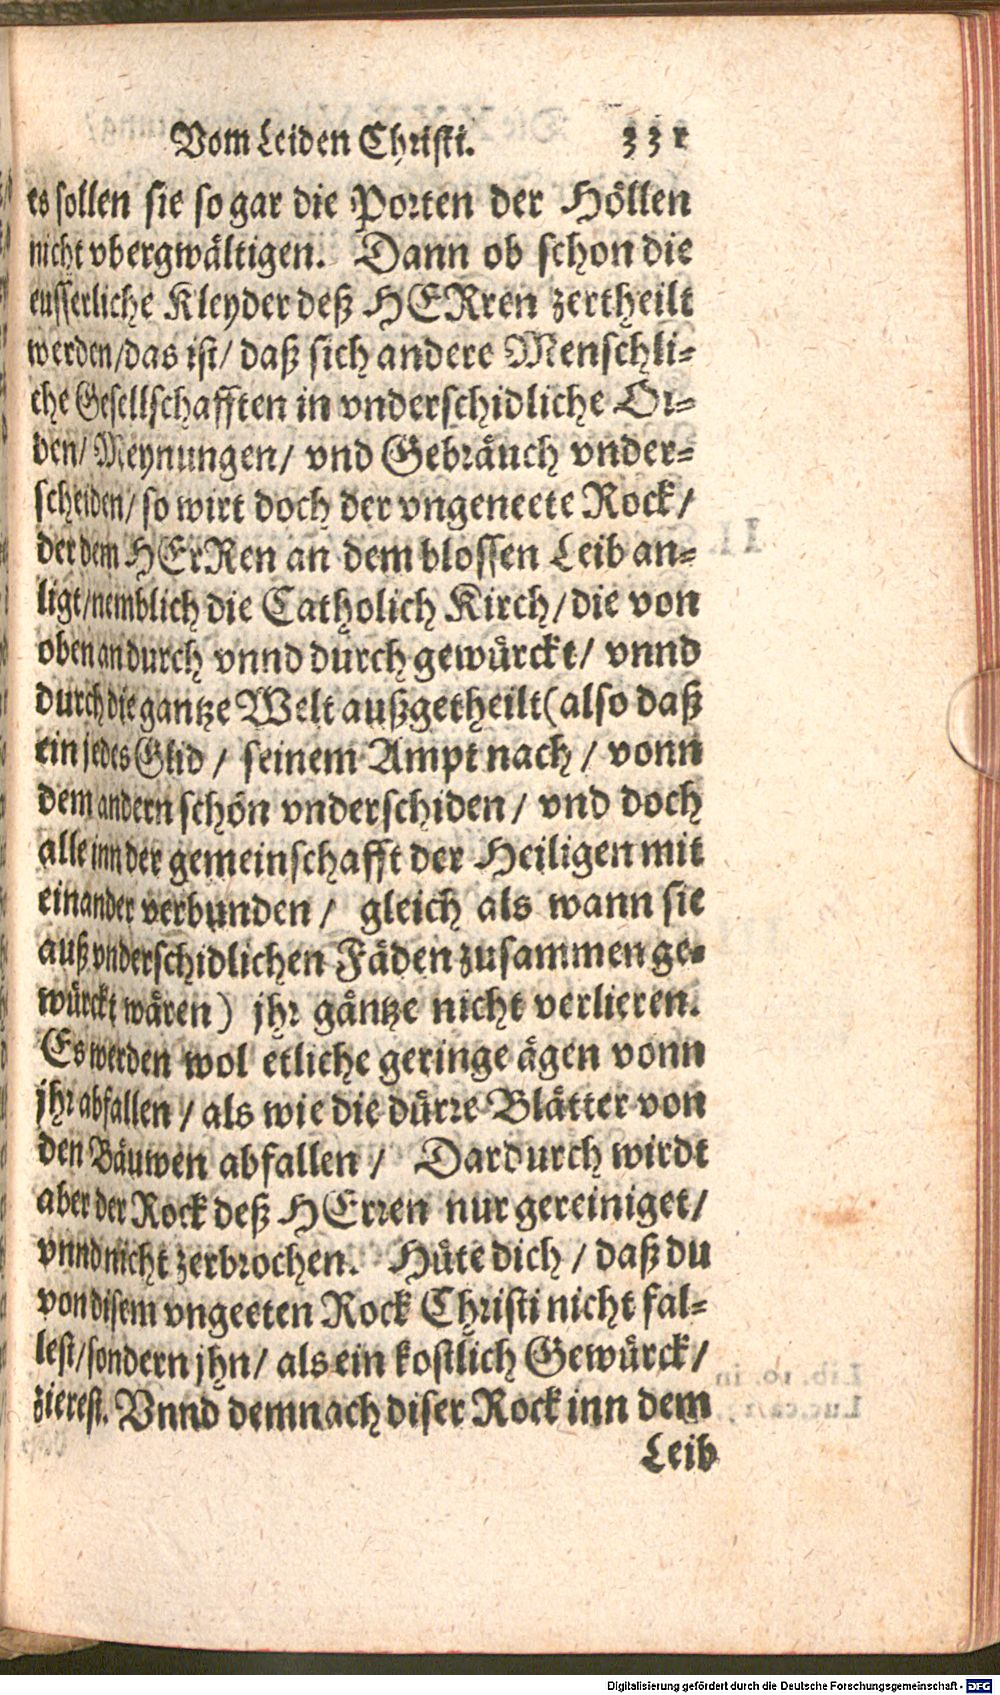 Vom Leiden Christi. 331
es sollen sie so gar die Porten der Höllen
nicht vbergwältigen. Dann ob schon die
eusserliche Kleyder deß HERren zertheilt
werden/das ist/ daß sich andere Menschli-
che Gesellschafften in vnderschidliche Or-
den/ Meynungen/ vnd Gebräuch vnder-
scheiden/ so wirt doch der vngeneete Rock/
der dem HErRen an dem blossen Leib an-
ligt/nemblich die Catholich Kirch/die von
oben an durch vnnd durch gewürckt/ vnnd
durch die gantze Welt außgetheilt(also daß
ein jedes Glid / seinem Ampt nach / vonn
dem andern schön vnderschiden/ vnd doch
alle inn der gemeinschafft der Heiligen mit
einander verbunden/ gleich als wann sie
auß vnderschidlichen Fäden zusammen ge-
würckt wären) jhr gäntze nicht verlieren.
Es werden wol etliche geringe ägen vonn
jhr abfallen / als wie die dürre Blätter von
den Bäuwen abfallen / Dardurch wirdt
aber der Rock deß HErren nur gereiniget/
vnnd nicht zerbrochen. Hüte dich / daß du
von disem vngeeten Rock Christi nicht fal-
lest/sondern jhn/ als ein kostlich Gewürck/
zierest. Vnnd demnach diser Rock inn dem
Leib
Digitalisierung gefördert durch die Deutsche Forschungsgemeinschaft - DFG